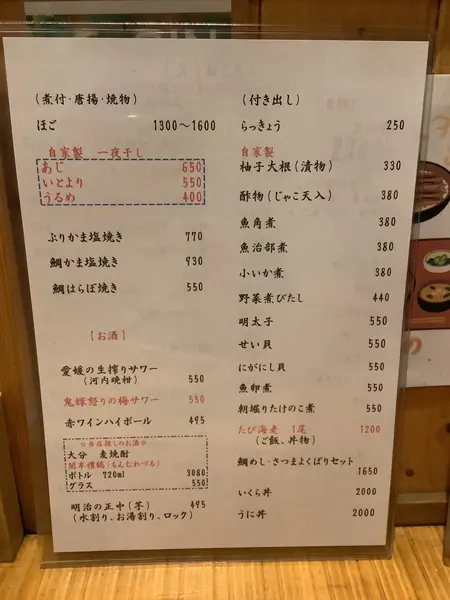 (煮付・唐揚・焼物)
ほご 1300〜1600
自家製 一夜干し
あじ 650
いとより 550
うるめ 400
ぶりかま塩焼き 770
鯛かま塩焼き 930
鯛はらぼ焼き 550
【お酒】
愛媛の生搾りサワー
(河内晩柑) 550
鬼嫁怒りの梅サワー 550
赤ワインハイボール 495
☆当店推しのお酒☆
大分 麦焼酎
(もんむれづる)
ボトル 720ml 3080
グラス 550
明治の正中(芋) 495
(水割り、お湯割り、ロック)
(付き出し)
らっきょう 250
自家製
柚子大根(漬物) 330
酢物(じゃこ天入) 380
魚角煮 380
魚治部煮 380
小いか煮 380
野菜煮びたし 440
明太子 550
せい貝 550
にがにし貝 550
魚卵煮 550
朝堀りたけのこ煮 550
たび海老 1尾 1200
(ご飯、丼物)
鯛めし・さつまよくばりセット
1650
いくら丼 2000
うに丼 2000